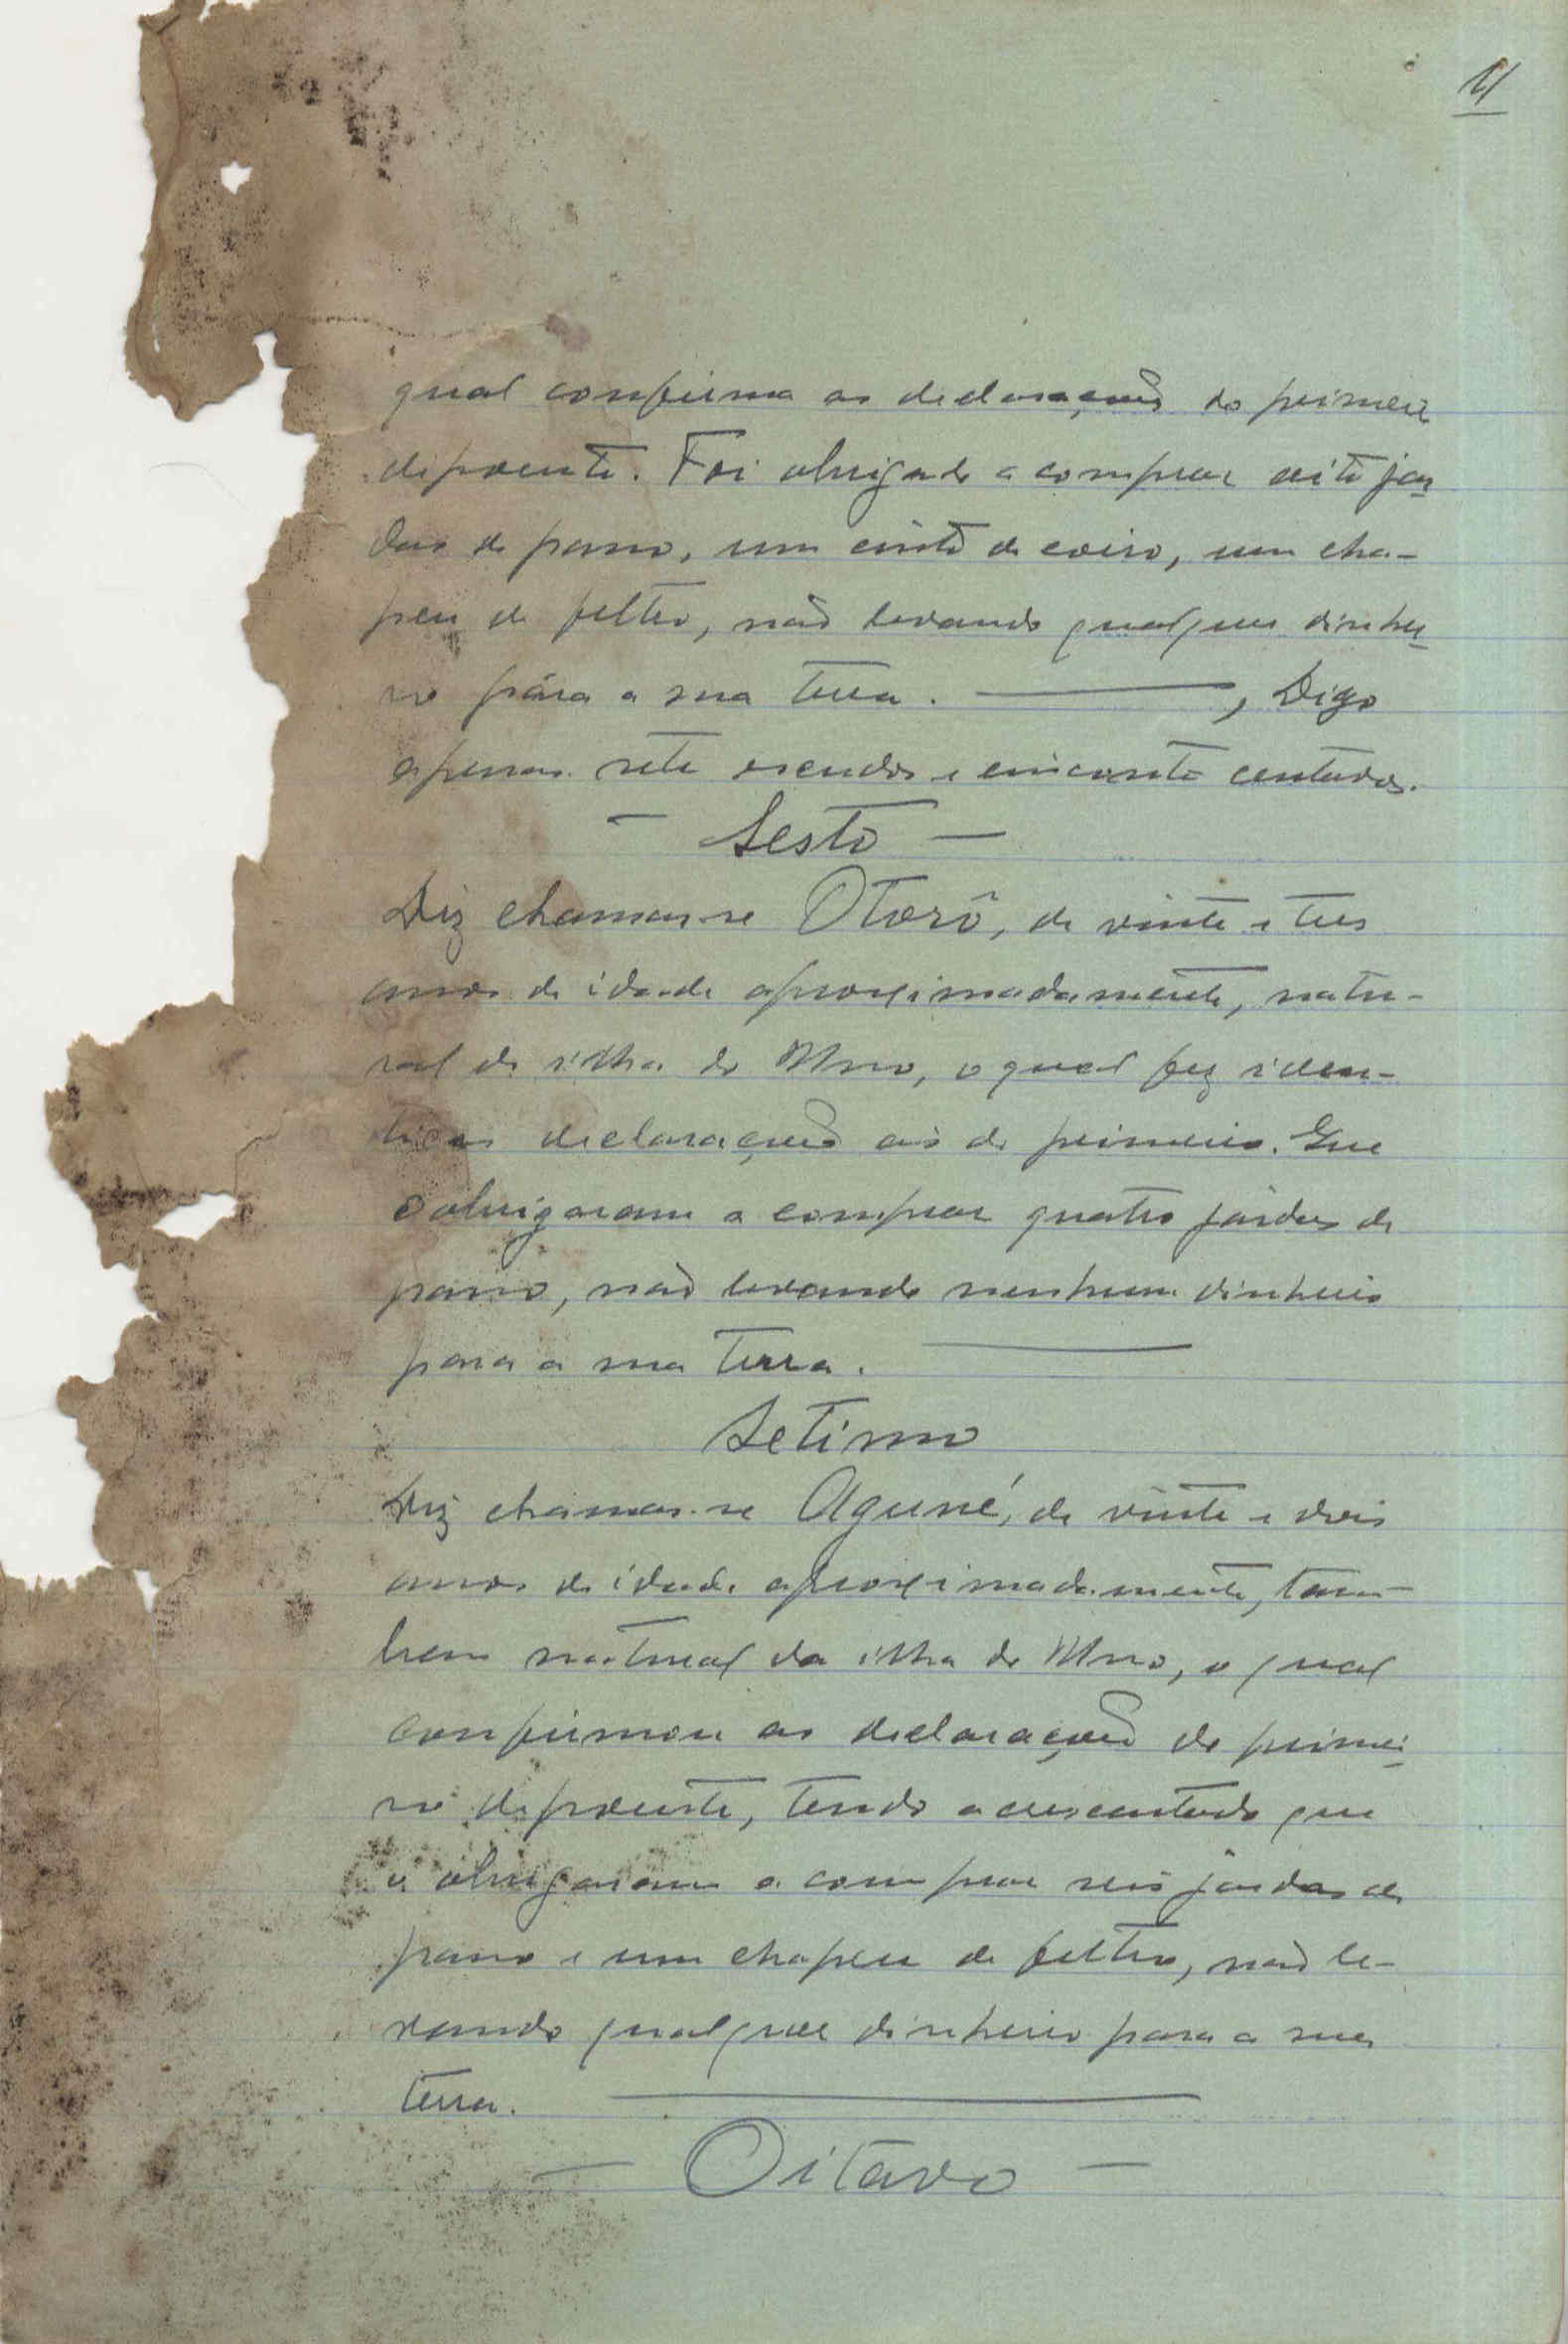 4
qual confirma as declarações do primeiro
dipoente. Foi obrigado a comprar oito jar
das de pano, um cinto de coiro, um cha-
peu de feltro, não levando qualquer dinhei
ro pára a sua terra. ———, Digo
apenas sete escudos e cincoenta centavos.
— Sesto —
Diz chamar-se Otorô, de vinte e tres
anos de idade aproximadamente, natu-
ral da ilha do Uno, o qual fez iden-
ticas declarações ás do primeiro. Que
o obrigaram a comprar quatro járdas de
pano, não levando nenhum dinheiro
para a sua terra. ———
Setimo
Diz chamar-se Aguné, de vinte e dois
anos de idade aproximadamente, tam-
bem natural da ilha do Uno, o qual
confirmou as declarações do primei
ro dipoente, tendo acrescentado que
o obrigaram a comprar seis járdas de
pano e um chapeu de feltro, não le-
vando qualquer dinheiro para a sua
terra. ———
— Oitavo —